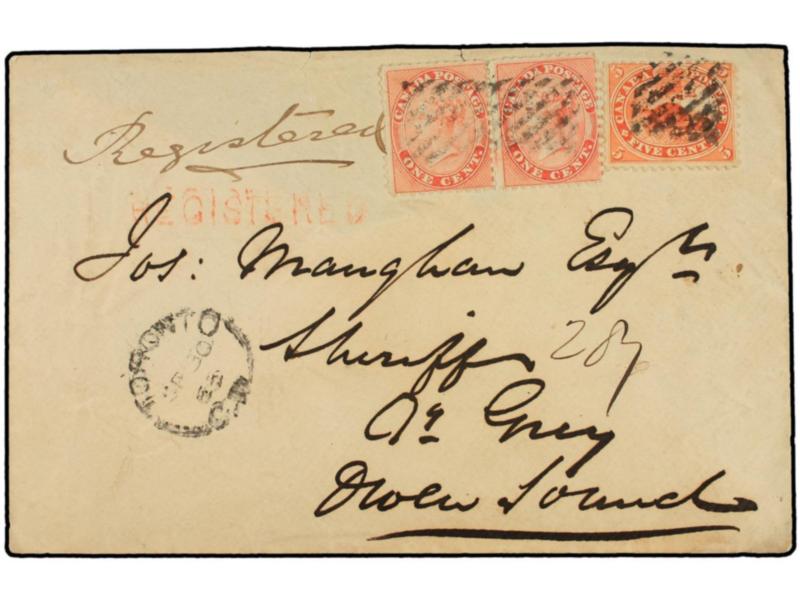 CANADA POSTAGE
ONE CENT.
CANADA POSTAGE
ONE CENT.
CANADA POSTAGE
5 FIVE CENTS 5
Registered
REGISTERED
Jos: Maughan Esqr
Sheriff
287
Co Grey
Owen Sound
TORONTO
SP 30
C.W.